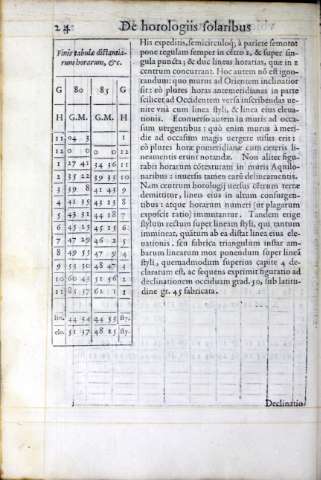 24 De horologiis solaribus
Finis tabulæ distantia-
rum horarum, &c.
G 80 85 G
H G.M. G.M. H
11 04 3 1
12 0 0 0 0 12
1 27 41 34 36 11
2 35 22 39 35 10
3 39 8 41 43 9
4 41 35 43 15 8
5 43 31 44 18 7
6 45 15 45 15 6
7 47 29 46 2 5
8 49 55 47 9 4
9 53 30 48 47 3
10 60 45 51 56 2
11 85 37 62 1 1
sti. 44 54 44 55 sty.
elo. 51 37 48 25 sty.
His expeditis, semicirculoq; à pariete semotot
pone regulam semper in cētro 2, & super sin-
gula puncta; & duc lineas horarias, quæ in 2
centrum concurrant. Hoc autem nō est igno-
randum: quo murus ad Orientem inclinatior
sit: eò plures horas antemeridianas in parte
scilicet ad Occidentem versa inscribendas ue-
nire vnà cum linea styli, & linea eius eleua-
tionis. Econuerso autem in muris ad occa-
sum uergentibus: quò enim murus à meri-
die ad occasum magis uergere uisus erit:
eò plures horæ pomeridianæ cum ceteris li-
neamentis erunt notandæ. Non aliter figu-
rabit horarum cōtextum in muris Aquilo-
naribus: inuersis tamen cartę delineamentis.
Nam centrum horologij uersus ostrum terræ
demittitur, linea eius in altum consurgen-
tibus: atque horarum numeri (ut plagarum
exposcit ratio) immutantur. Tandem erige
stylum rectum super lineam styli, qui tantum
immineat, quātum ab ea distat linea eius ele-
uationis. seu fabrica triangulum instar am-
barum linearum mox ponendum super lineā
styli, quemadmodum superius capite 4 de-
claratum est, ac sequens exprimit figuratio ad
declinationem occiduam grad. 30, sub latitu-
dine gr. 45 fabricata.
Declinatio